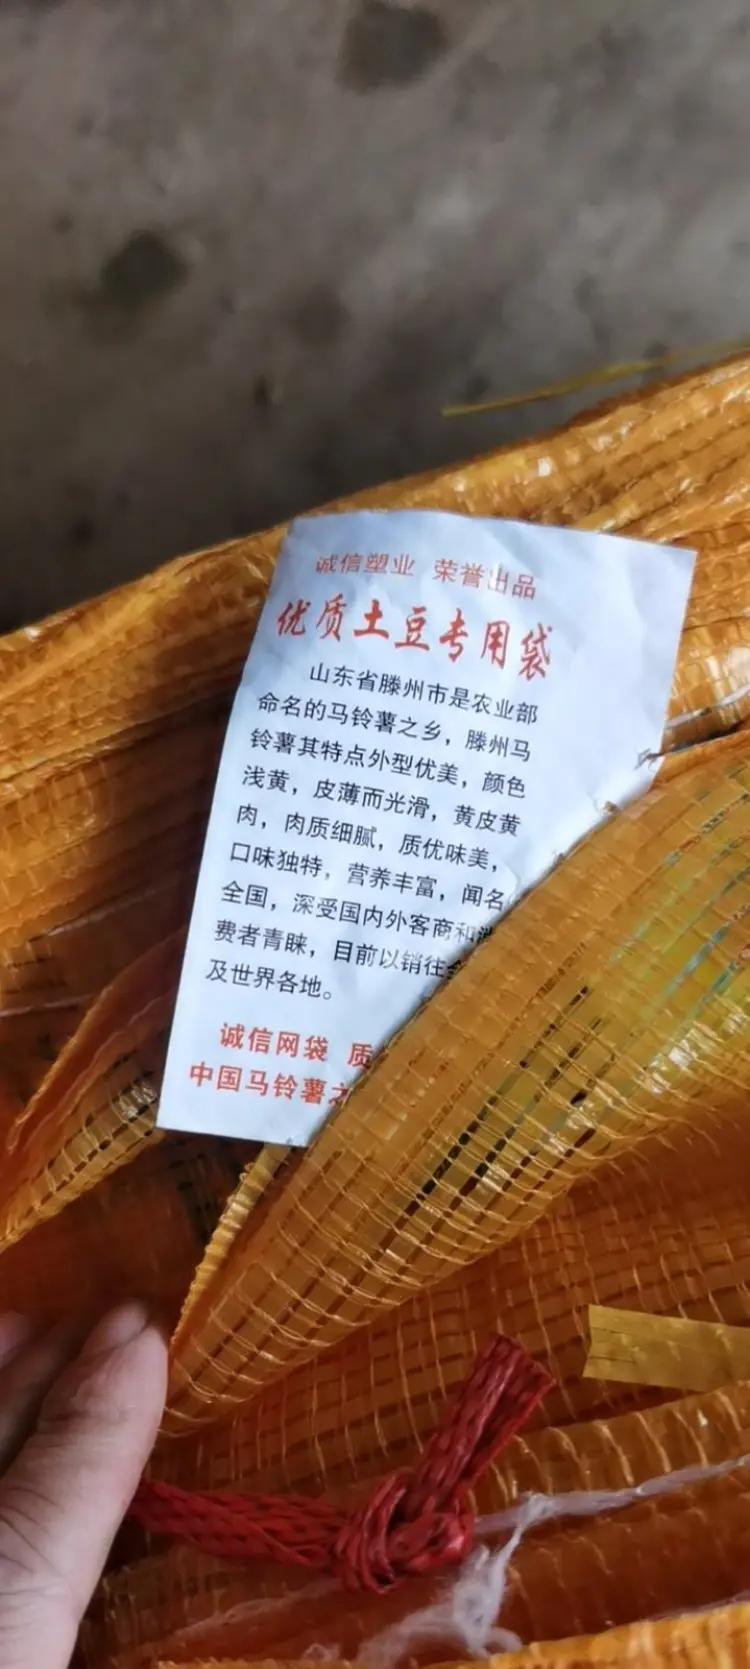 诚信塑业 荣誉出品
优质土豆专用袋
山东省滕州市是农业部
命名的马铃薯之乡，滕州马
铃薯其特点外型优美，颜色
浅黄，皮薄而光滑，黄皮黄
肉，肉质细腻，质优味美，
口味独特，营养丰富，闻名
全国，深受国内外客商和消
费者青睐，目前以销往全
及世界各地。
诚信网袋 质
中国马铃薯之